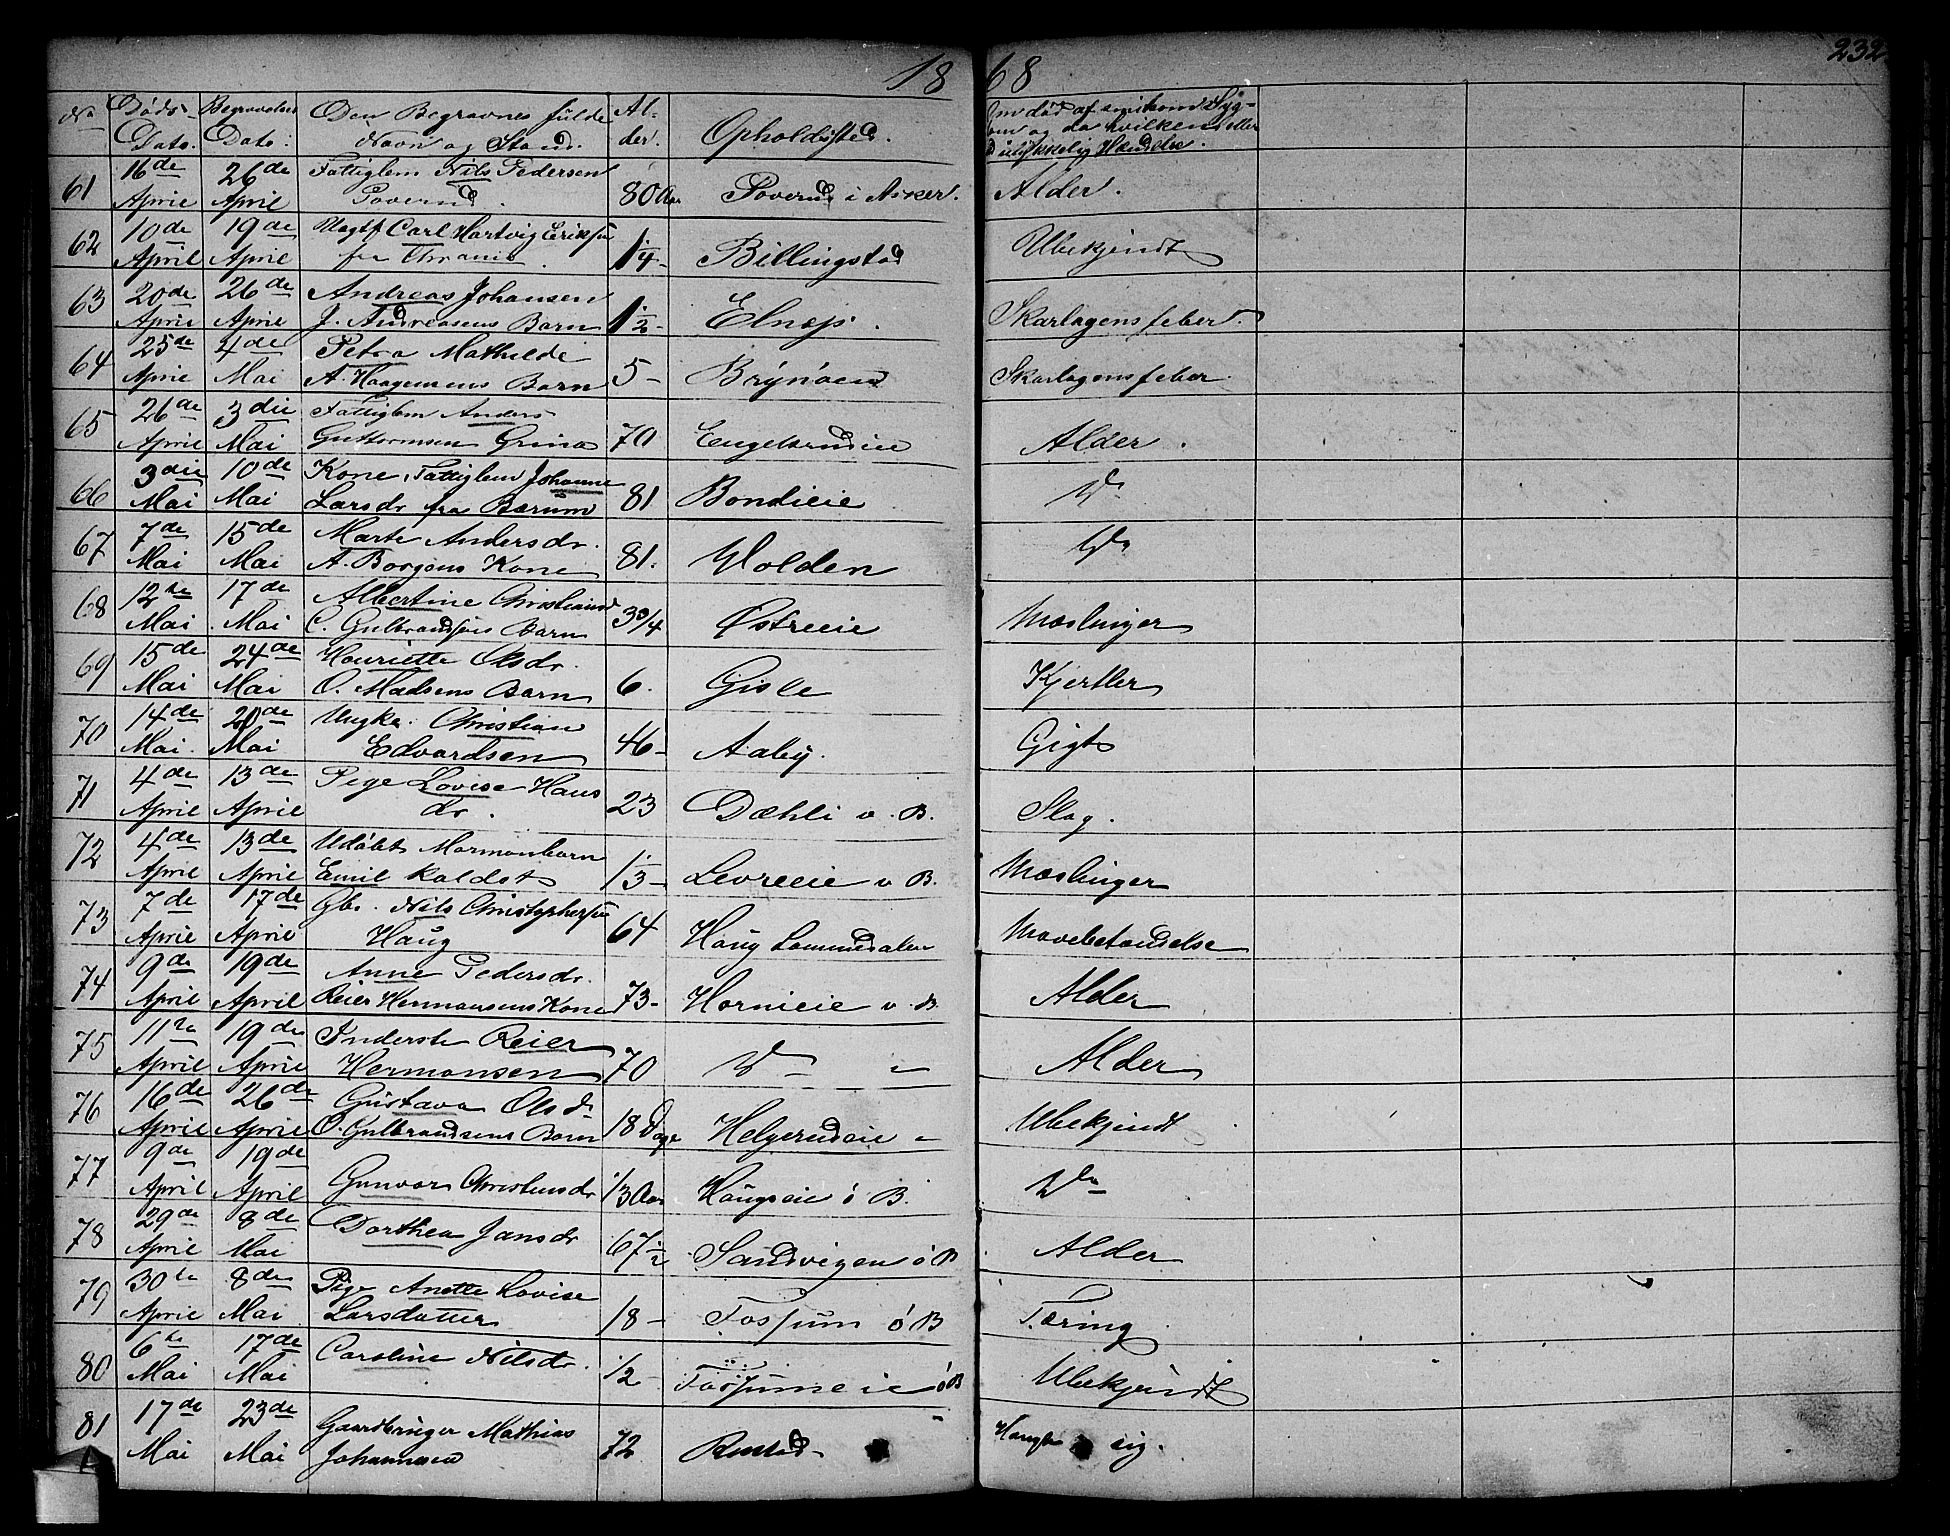 1868
232
No Døds- Begravelses Den Begravnes fulde Al-
Dato. Dato. Navn og Stand. der. Opholdssted.
Om død af smitsom Syg-
dom og da hvilken eller
ulykkelig Hændelse.
61 16de 26de Fattiglem Nils Pedersen
April April Poverud. 80 Aar Poverud i Asker. Alder.
62 10de 19de Ungk Carl Hartvig Eriksen
April April fra 1/4 - Billingstad Ubekjendt
63 20de 26de Andreas Johansen
April April J. Andreasens Barn 1/2 - Elnæs. Skarlagensfeber.
64 25de 4de Petra Mathilde
April Mai A. Haagensens Barn 5 - Brynøen Skarlagensfeber.
65 26de 3die Fattiglem Anders
April Mai Guttormsen Grina 70 Engelsrudeie Alder.
66 3die 10de Kone, Fattiglem Johanne
Mai Mai Larsdr fra Bærum 81 Bondieie Do
67 7de 15de Marte Andersdr.
Mai Mai A. Borgens Kone 81. Holden Do
68 12te 17de Albertine Christiansd
Mai Mai C. Gulbrandsens Barn 3 3/4 Østreeie Mæslinger
69 15de 24de Henriette Olsdr.
Mai Mai O. Madsens Barn 6. Gisle Kjertler
70 14de 20de Ungka. Christian
Mai. Mai Edvardsen 46 - Aaby. Gigt
71 4de 13de Pige Lovise Hans
April April dr. 23 Dæhli v. B. Slag.
72 4de 13de Udøbt Mormonbarn
April April Emil kaldet 1/3 - Levreeie v B. Mæslinger
73 7de 17de Gbr. Nils Christophersen
April April Haug 64 Haug Lommedalen Mavebetændelse
74 9de 19de Anne Pedersdr.
April April Reier Hermansens Kone 73 - Hornieie v. B Alder
75 11te 19de Inderste Reier
April April Hermansen 70 Do " Alder
76 16de 26de Gustava Olsdr
April April O. Gulbrandsens Barn 18 Dage Helgerudeie " Ubekjendt.
77 9de 19de
April April Gunvor Christensdr 1/3 Aar Haugseie ó B. Do
78 29de 8de Dorthea Jansdr
April Mai 67 1/2 Sandvigen ó B Alder
79 30te 8de Pige Anette Lovise
April Mai Larsdatter 18 - Fossum ó B Tæring.
80 6te 17de Caroline Nilsdr.
Mai Mai 1/2 - Fossumeie ó B Ubekjendt
81 17de 23de Gaardbruger Mathias
Mai Mai Johannesen 72 Rustad - Hængte sig.